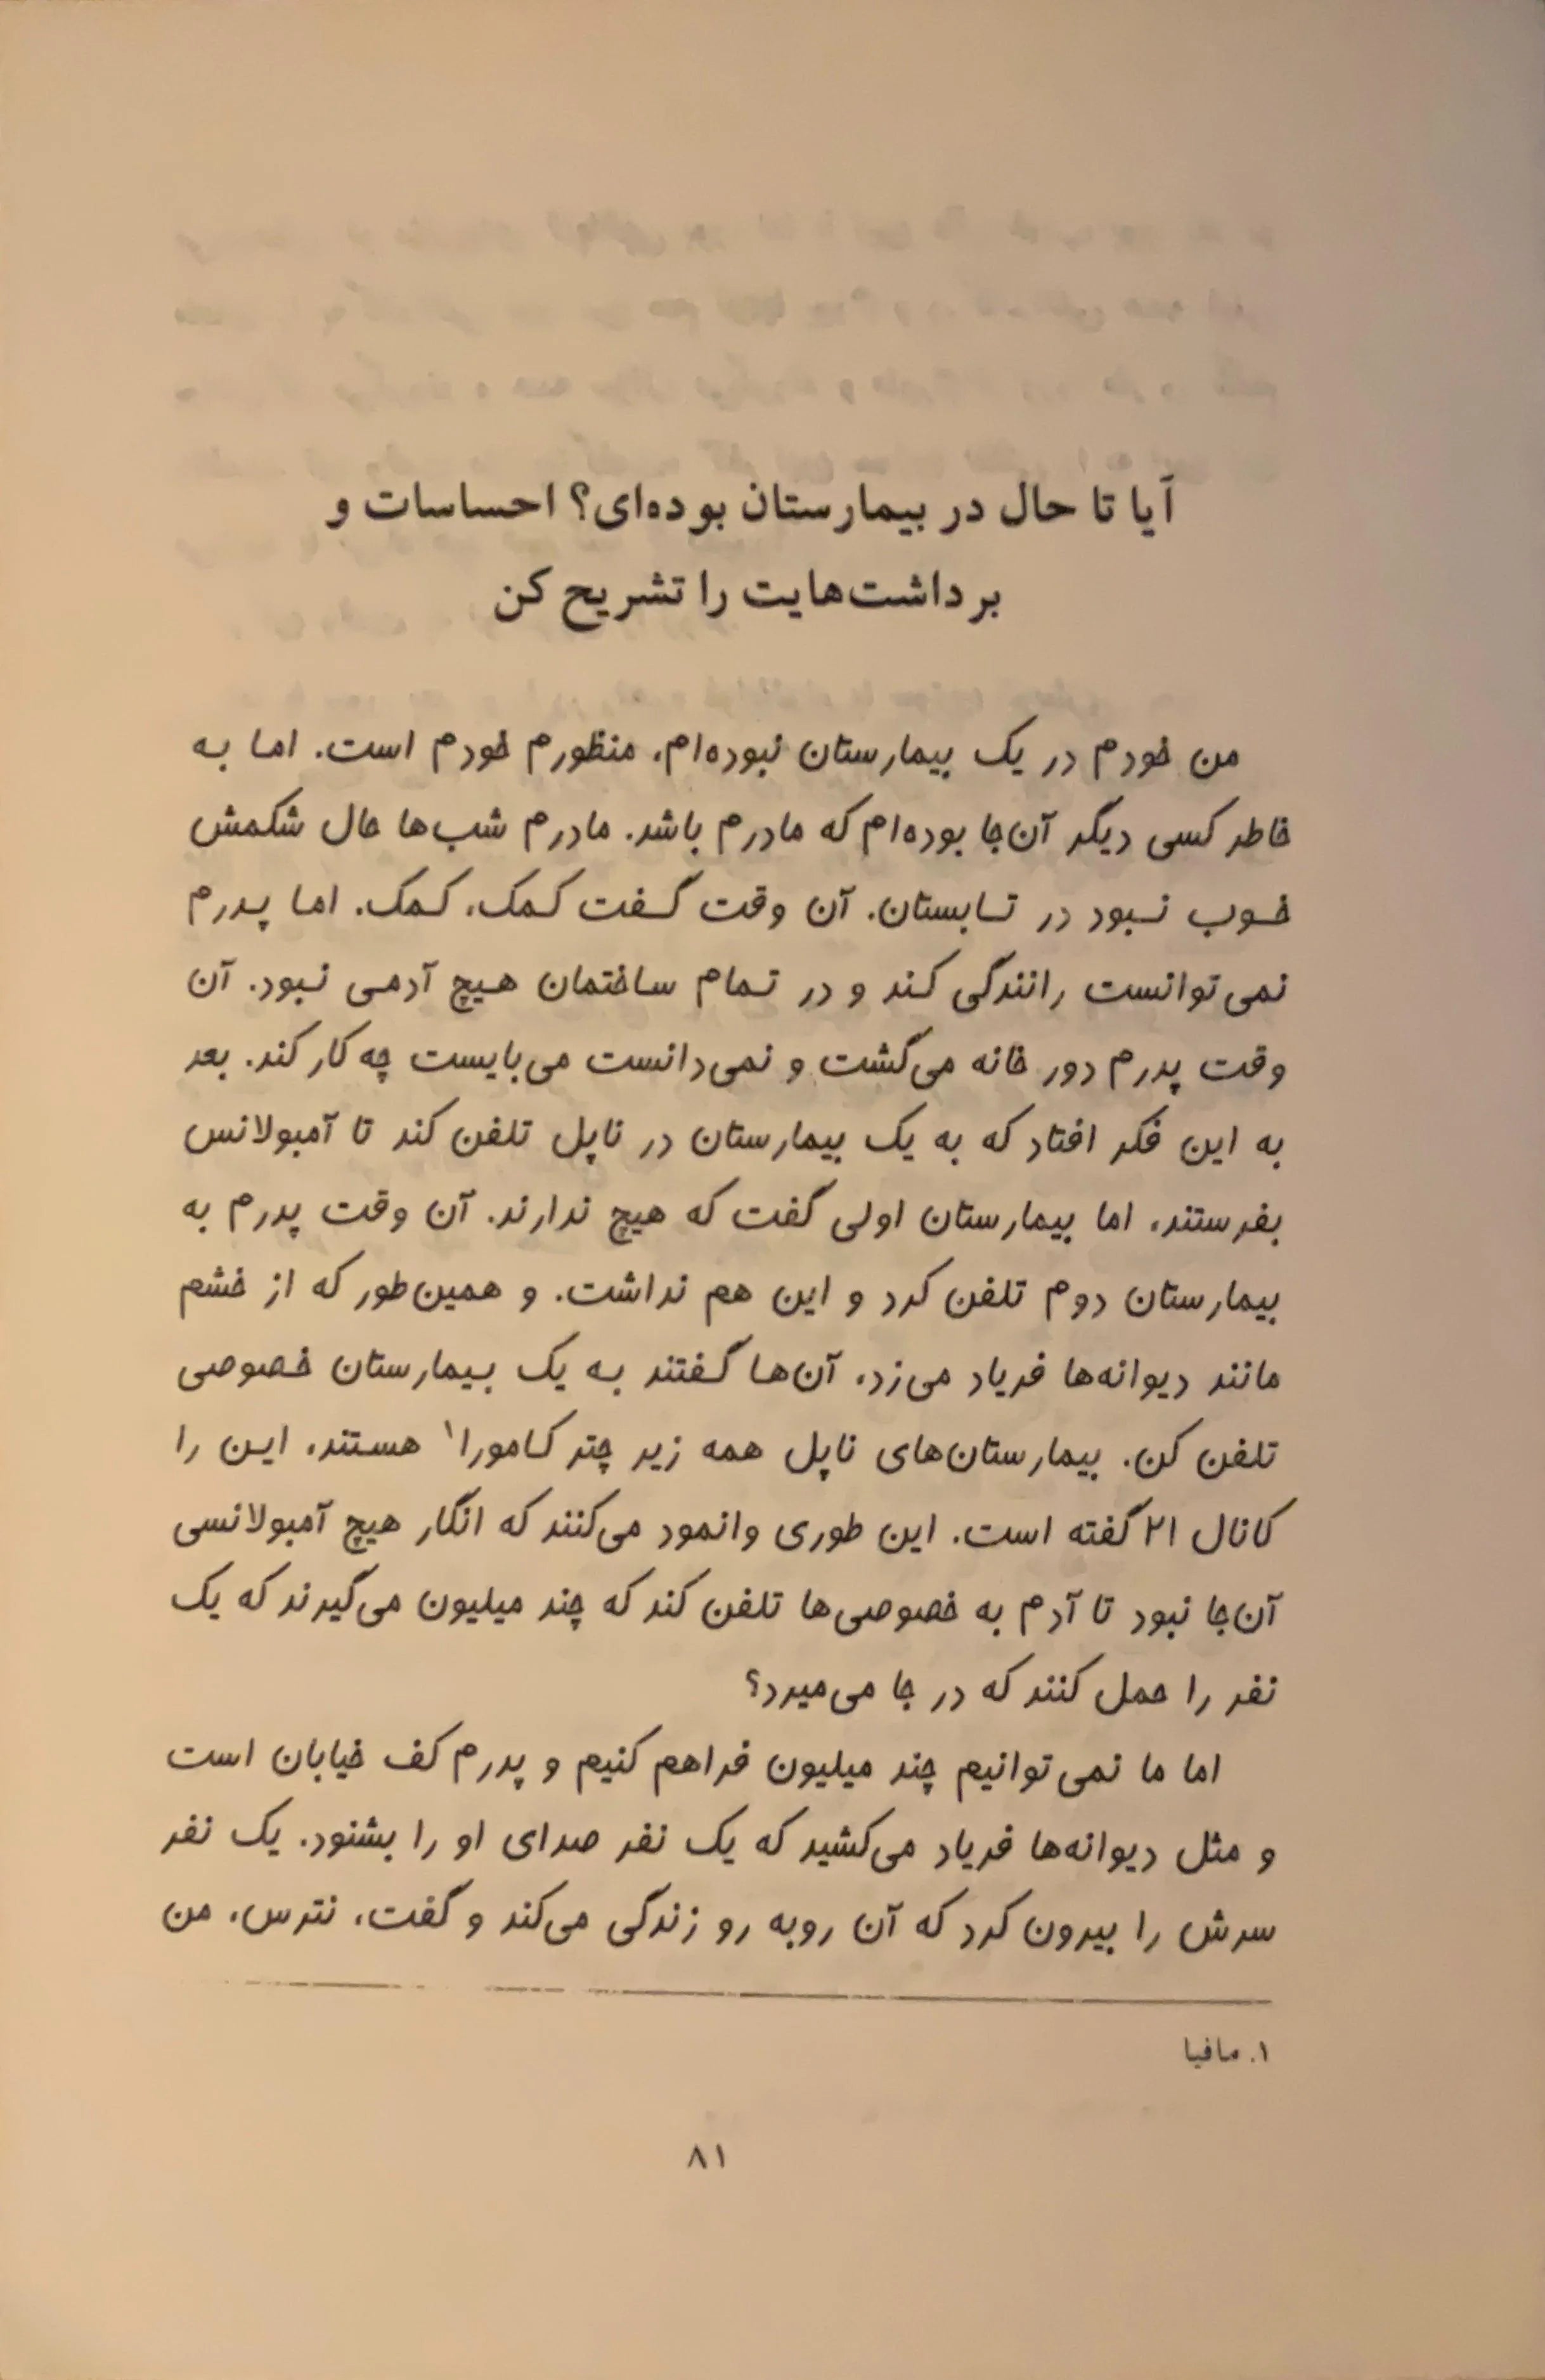 آیا تا حال در بیمارستان بوده‌ای؟ احساسات و
برداشت‌هایت را تشریح کن
من خودم در یک بیمارستان نبوده‌ام، منظورم خودم است. اما به
خاطر کسی دیگر آن‌جا بوده‌ام که مادرم باشد. مادرم شب‌ها حال شکمش
خوب نبود در تابستان. آن وقت گفت کمک، کمک. اما پدرم
نمی‌توانست رانندگی کند و در تمام ساختمان هیچ آدمی نبود. آن
وقت پدرم دور خانه می‌گشت و نمی‌دانست می‌بایست چه کار کند. بعد
به این فکر افتاد که به یک بیمارستان در ناپل تلفن کند تا آمبولانس
بفرستند، اما بیمارستان اولی گفت که هیچ ندارند. آن وقت پدرم به
بیمارستان دوم تلفن کرد و این هم نداشت. و همین‌طور که از خشم
مانند دیوانه‌ها فریاد می‌زد، آن‌ها گفتند به یک بیمارستان خصوصی
تلفن کن. بیمارستان‌های ناپل همه زیر چتر کامورا۱ هستند، این را
کانال ۲۱ گفته است. این طوری وانمود می‌کنند که انگار هیچ آمبولانسی
آن‌جا نبود تا آدم به خصوصی‌ها تلفن کند که چند میلیون می‌گیرند که یک
نفر را حمل کنند که در جا می‌میرد؟
اما ما نمی‌توانیم چند میلیون فراهم کنیم و پدرم کف خیابان است
و مثل دیوانه‌ها فریاد می‌کشید که یک نفر صدای او را بشنود. یک نفر
سرش را بیرون کرد که آن روبه رو زندگی می‌کند و گفت، نترس، من
۱. مافیا
۸۱